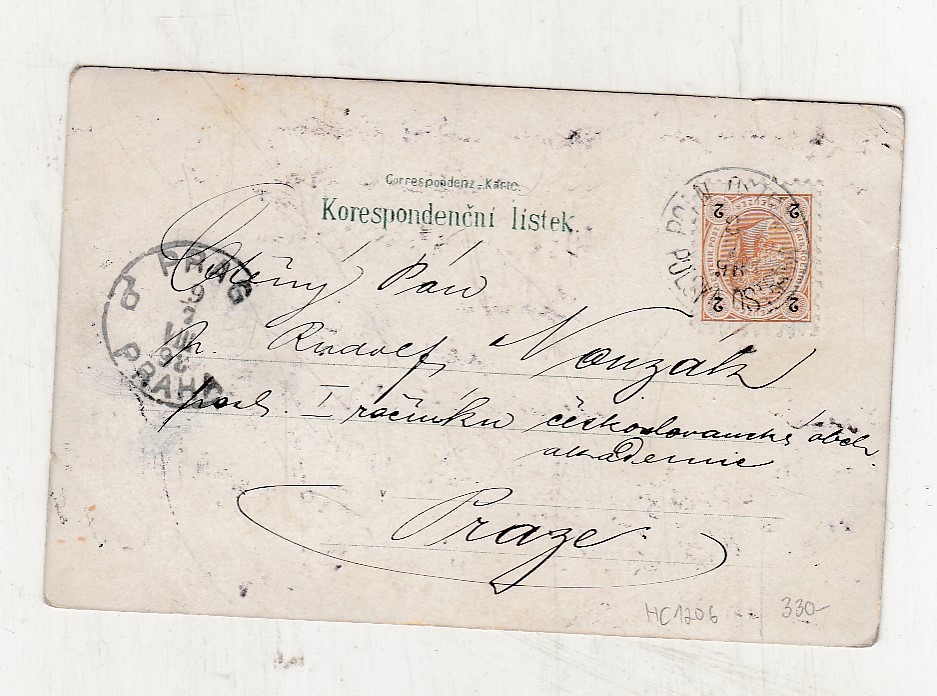 Correspondenz-Karte.
Korespondenční lístek.
Ctěný Pán
p. Rudolf Nouzák
posl. I ročníku českoslovanské obch.
akademie
v
Praze
PRAG
PRAHA
2 2
2 2
HC1206
330-